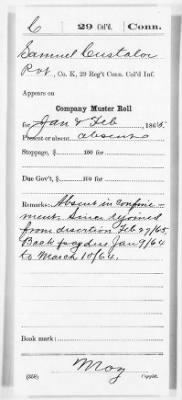 C 29 Col'd. Conn.
Samuel Custalow
Pvt., Co. K, 29 Reg't Conn. Col'd Inf.
Appears on
Company Muster Roll
for Jan & Feb, 1865.
Present or absent absent
Stoppage, $ 100 for
Due Gov't, $ 100 for
Remarks: Absent in confine-
ment. Since rejoined
from desertion Feb 27/65.
Back pay due Jan 9/64
to March 10/64.
Book mark:
May
(358) Copyist.